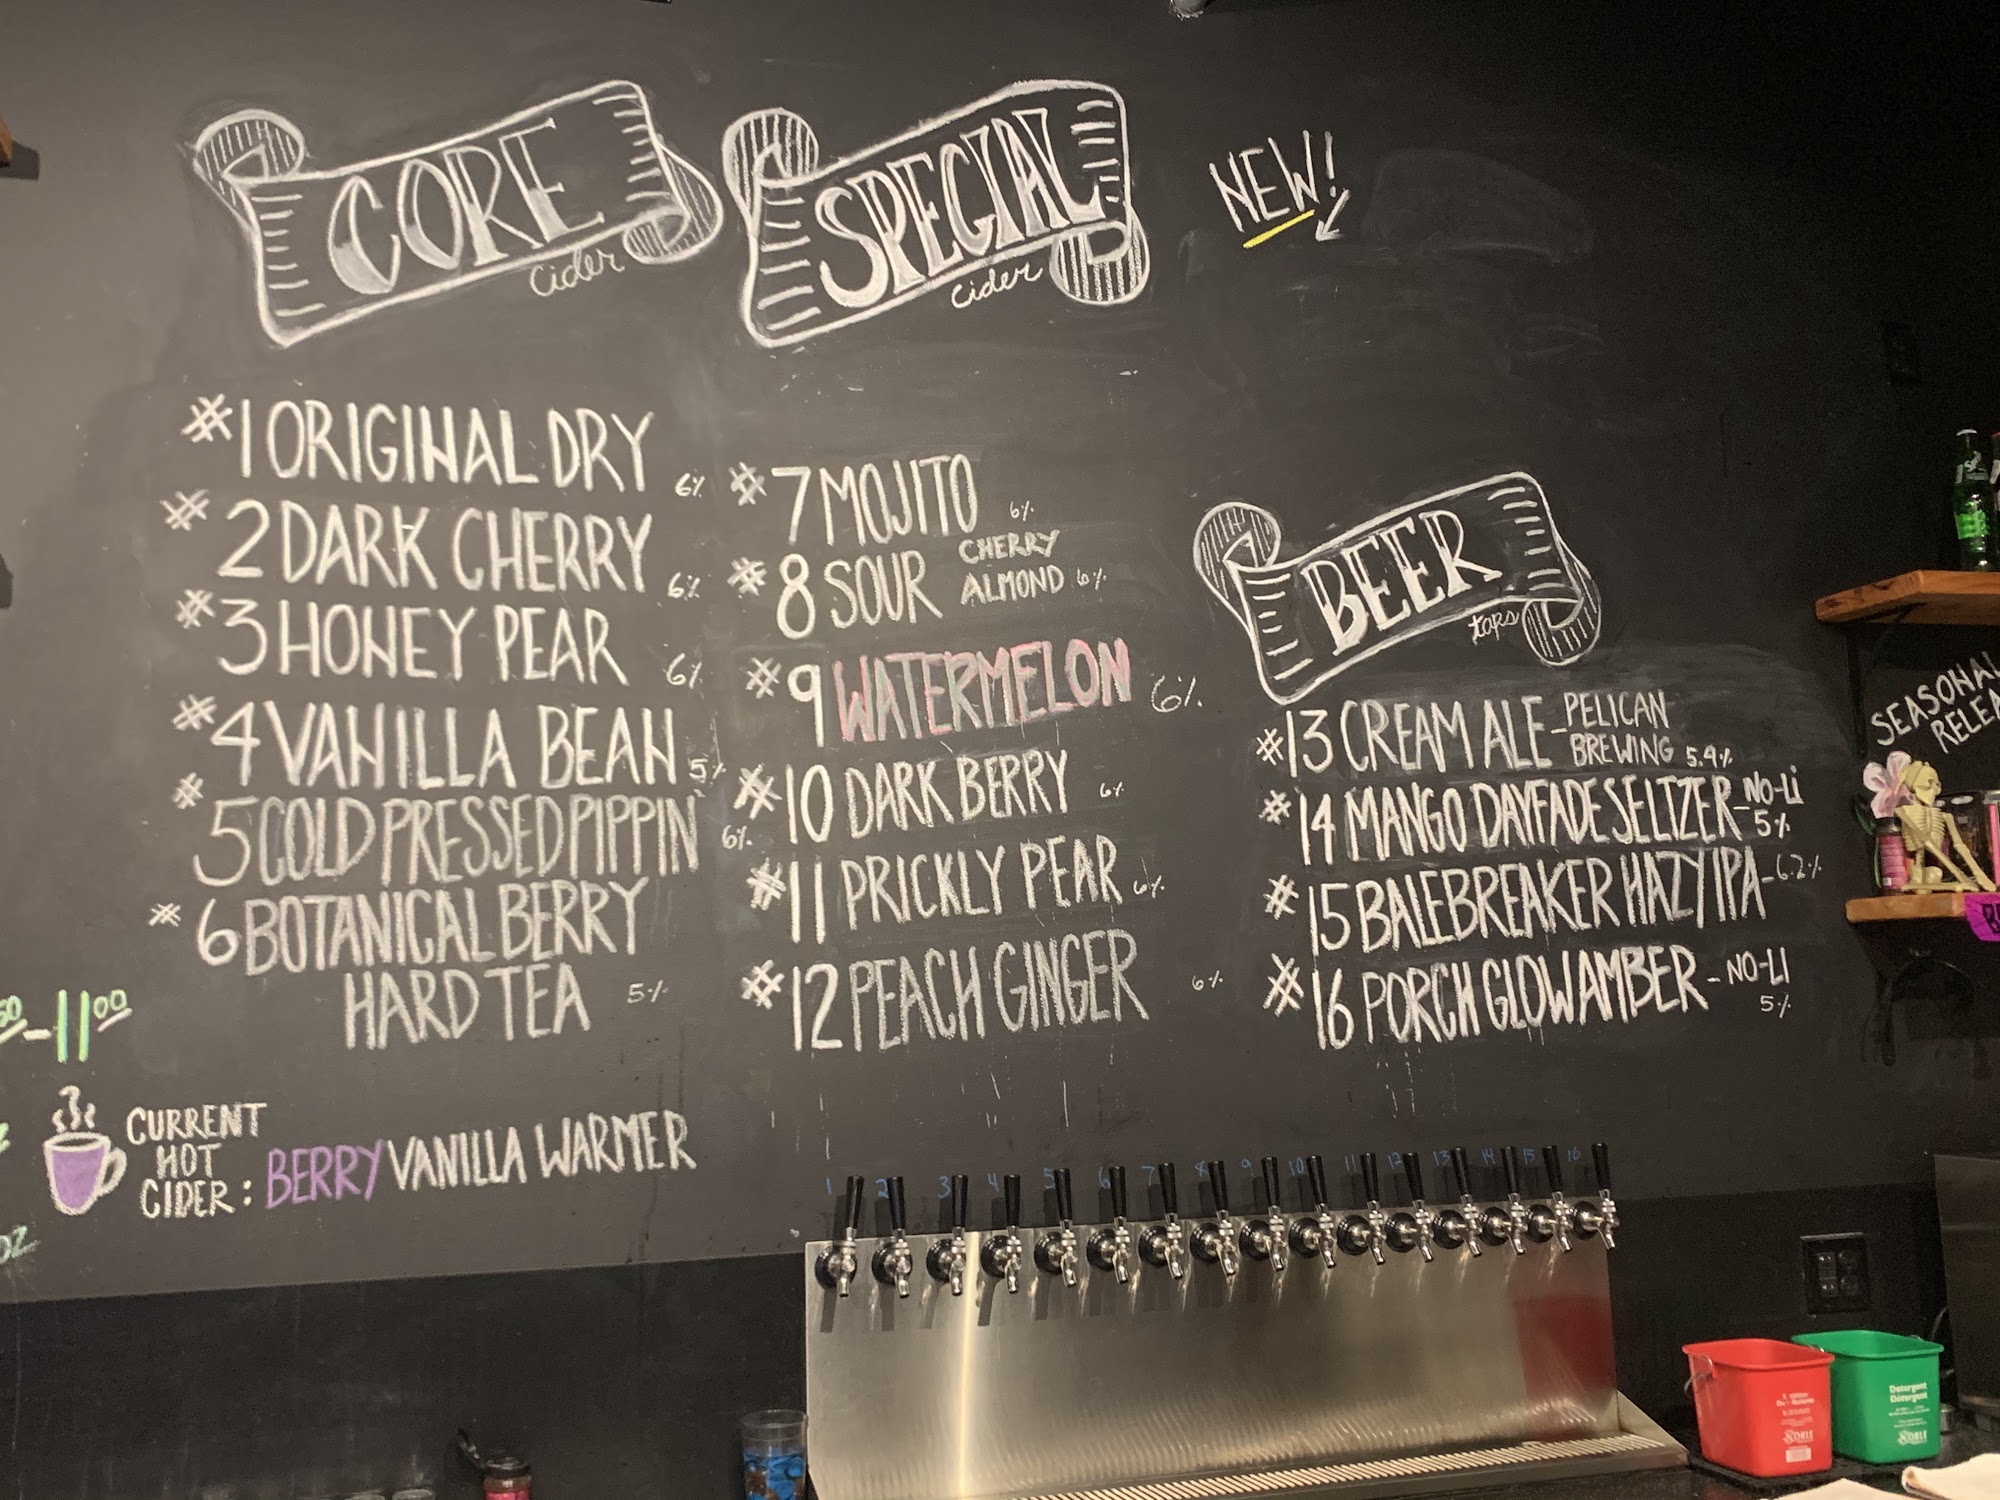 CORE
cider
#1 ORIGINAL DRY 6%
#2 DARK CHERRY 6%
#3 HONEY PEAR 6%
#4 VANILLA BEAN 5%
#5 COLD PRESSED PIPPIN 6%
#6 BOTANICAL BERRY
HARD TEA 5%
11⁰⁰
CURRENT
HOT
CIDER: BERRY VANILLA WARMER
OZ
SPECIAL
cider
#7 MOJITO 6%
#8 SOUR CHERRY
ALMOND 6%
#9 WATERMELON 6%
#10 DARK BERRY 6%
#11 PRICKLY PEAR 6%
#12 PEACH GINGER 6%
NEW!
BEER
taps
#13 CREAM ALE - PELICAN
BREWING 5.4%
#14 MANGO DAYFADE SELTZER - NO-LI
5%
#15 BALEBREAKER HAZY IPA - 6.2%
#16 PORCH GLOW AMBER - NO-LI
5%
SEASONAL
1 2 3 4 5 6 7 8 9 10 11 12 13 14 15 16
Detergent
Detergent
NOBLE